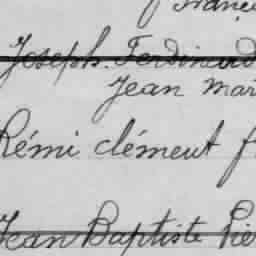 Joseph. Ferdinand
Jean Mar
Rémi clément f
Jean Baptiste Pie